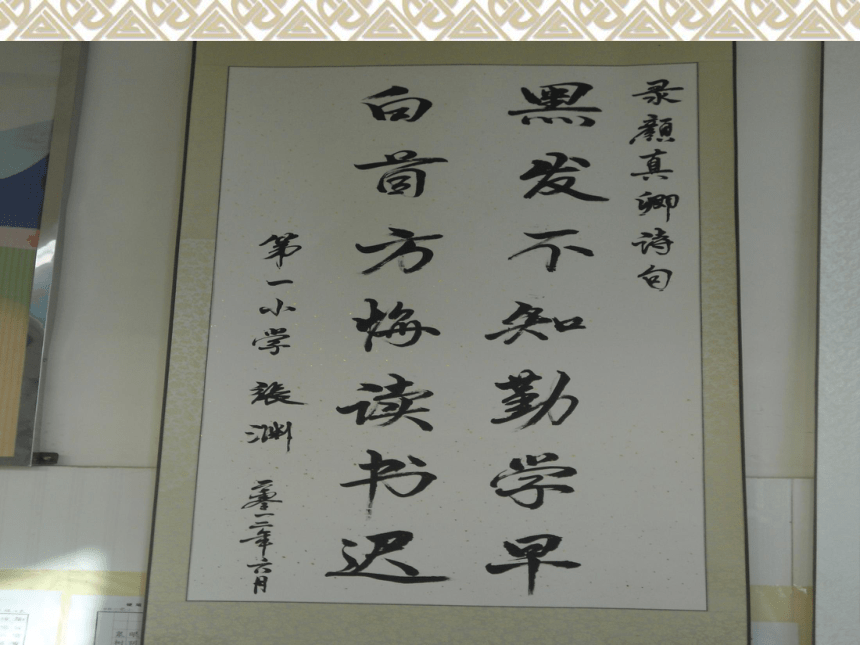 录颜真卿诗句
黑发不知勤学早
白首方悔读书迟
第一小学 张渊 二零一二年六月